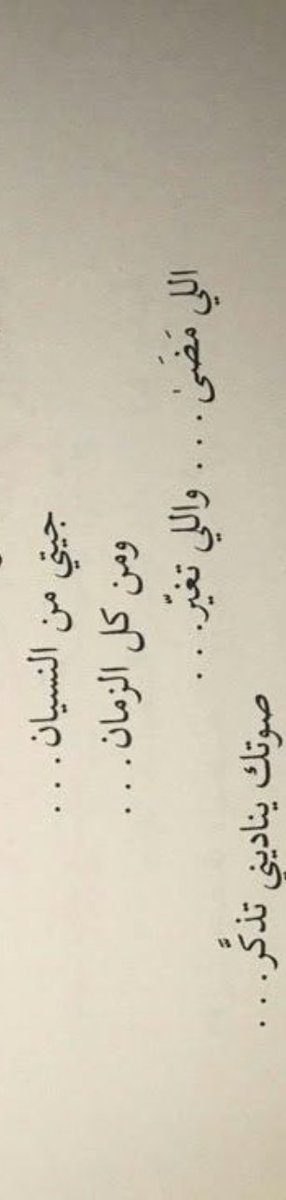 جيتي من النسيان. . .
ومن كل الزمان. . .
اللي مَضَىٰ. . . . واللي تغيّر. . .
صوتك يناديني تذكَّر. . .